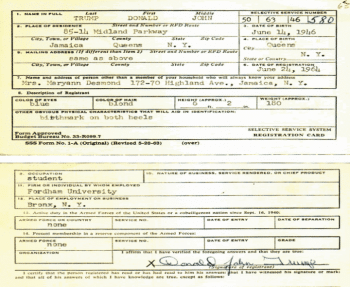 1. NAME IN FULL Last First Middle SELECTIVE SERVICE NUMBER
TRUMP DONALD JOHN 50 63 46 580
2. PLACE OF RESIDENCE Street and Number or RFD Route 3. DATE OF BIRTH
85-14 Midland Parkway June 14, 1946
City, Town, or Village County State 4. PLACE OF BIRTH
Jamaica Queens N. Y. Queens
5. MAILING ADDRESS (If different than Item 2) Street and Number or RFD Route
same as above N. Y.
City, Town, or Village County State 6. DATE OF REGISTRATION
June 24, 1964
7. Name and address of person other than a member of your household who will always know your address
Mrs. Maryann Desmond 172-70 Highland Ave., Jamaica, N. Y.
8. Description of Registrant
COLOR OF EYES COLOR OF HAIR HEIGHT (approx.) WEIGHT (approx.)
blue blond 6 2 180
OTHER OBVIOUS PHYSICAL CHARACTERISTICS THAT WILL AID IN IDENTIFICATION:
birthmark on both heels
Form Approved SELECTIVE SERVICE SYSTEM
Budget Bureau No. 33-R099.7 REGISTRATION CARD
SSS Form No. 1-A (Original) (Revised 5-22-63) (over)
9. OCCUPATION 10. NATURE OF BUSINESS, SERVICE RENDERED, OR CHIEF PRODUCT
student
11. FIRM OR INDIVIDUAL BY WHOM EMPLOYED
Fordham University
12. PLACE OF EMPLOYMENT OR BUSINESS
Bronx, N. Y.
13. Active duty in the Armed Forces of the United States or a cobelligerent nation since Sept. 16, 1940.
ARMED FORCE OR COUNTRY SERVICE NO. DATE OF ENTRY DATE OF SEPARATION
none
14. Present membership in a reserve component of the Armed Forces.
ARMED FORCE SERVICE NO. DATE OF ENTRY GRADE
none
ORGANIZATION I affirm that I have verified the foregoing answers and that they are true:
X Donald John Trump
(Signature of registrant)
I certify that the person registered has read or has had read to him his answers; that I have witnessed his signature or mark;
and that all of his answers of which I have knowledge are true, except as follows: